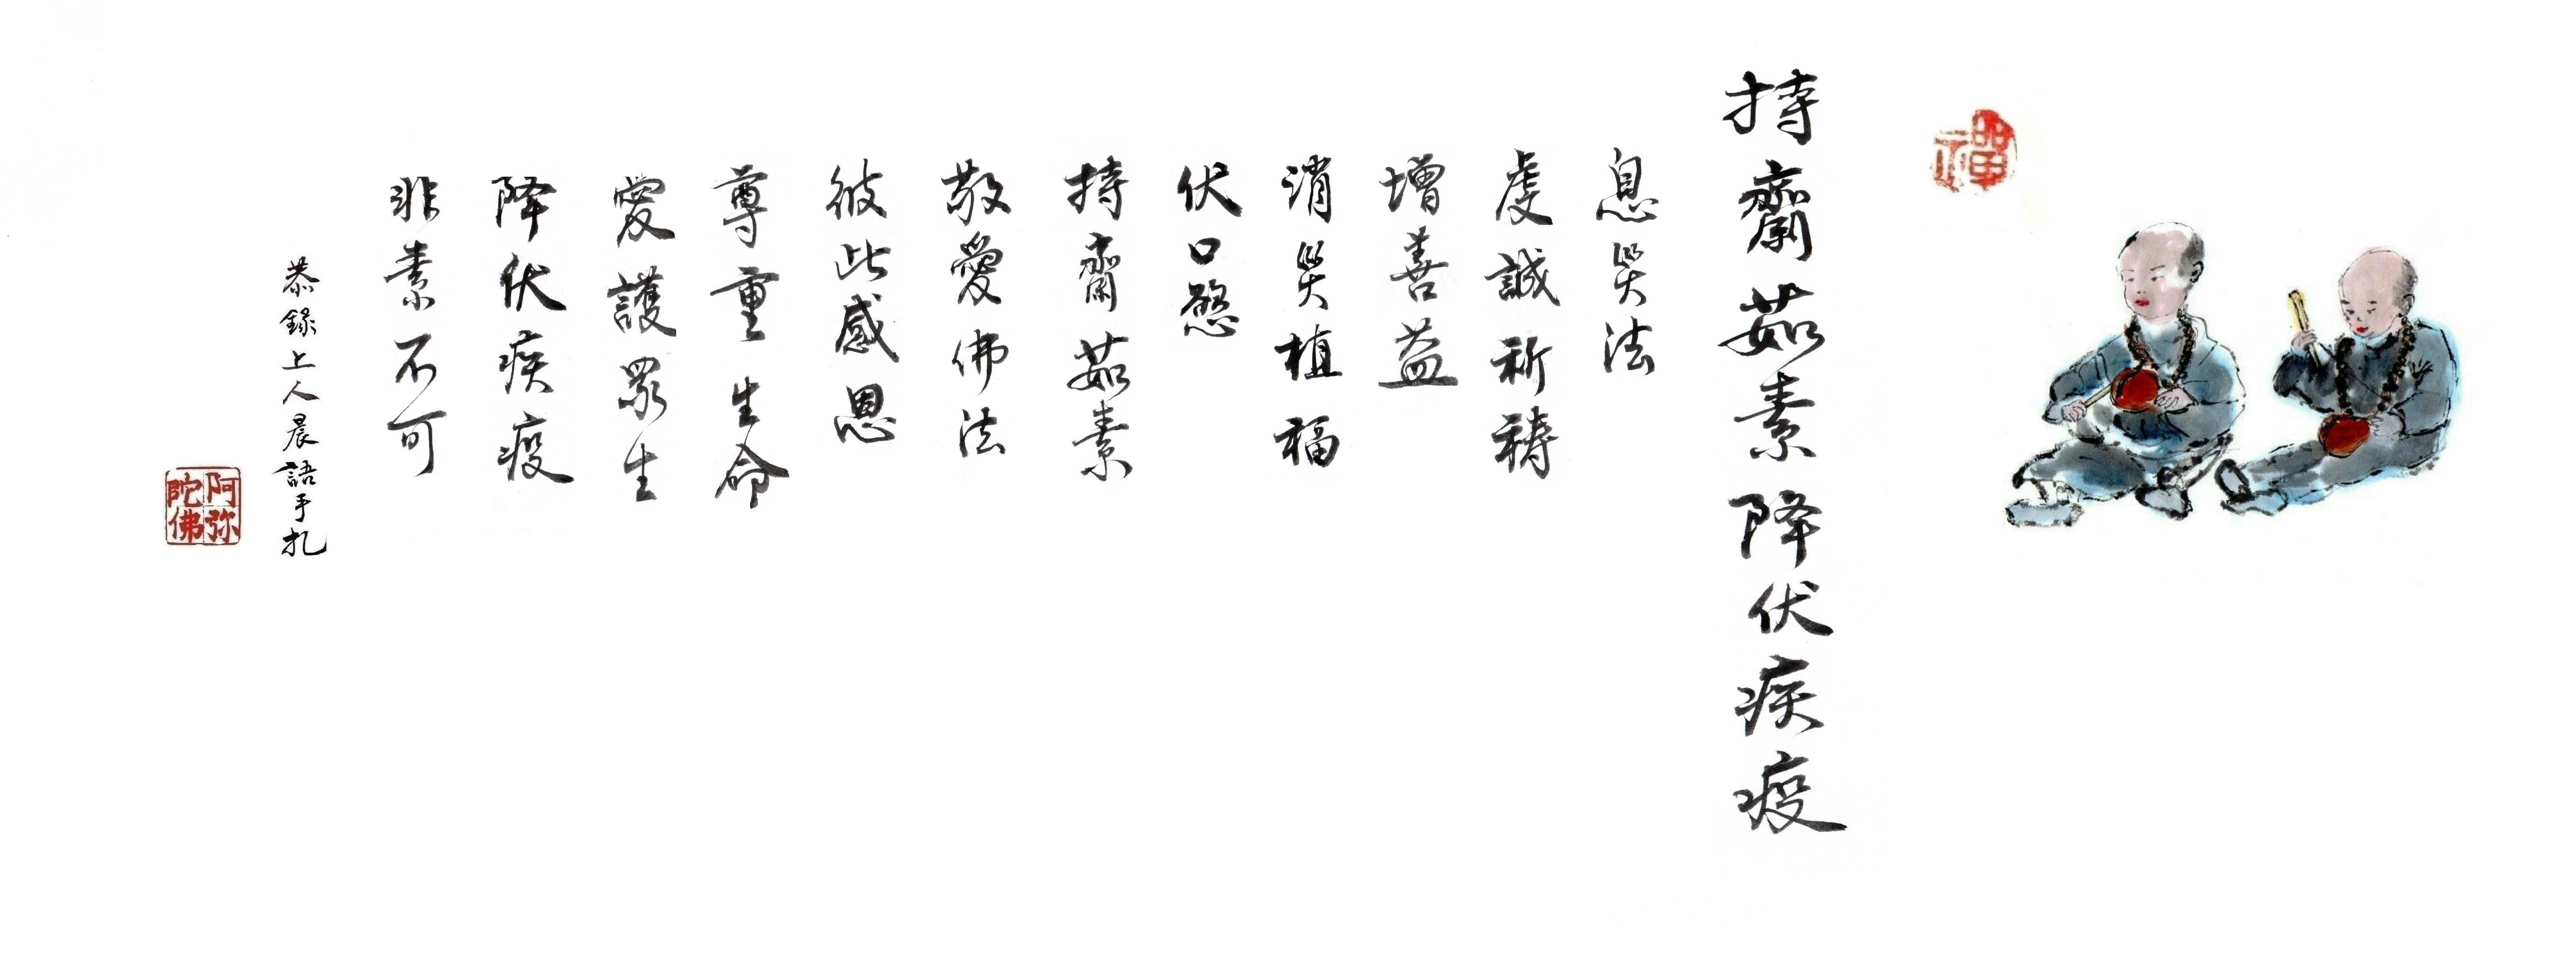 禪
持齋茹素降伏疾疫
息災法
虔誠祈禱
增善益
消災植福
伏口慾
持齋茹素
敬愛佛法
彼此感恩
尊重生命
愛護眾生
降伏疾疫
非素不可
恭錄上人晨語手札
阿弥陀佛